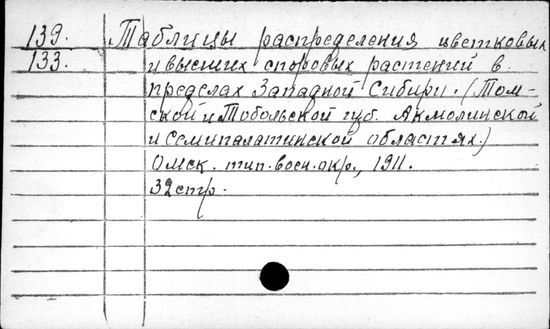 139. Таблицы распределения цветковых
133. и высших споровых растений в
пределах Западной Сибири. (Том-
ской и Тобольской губ. Акмолинской
и Семипалатинской областях.)
Омск. тип. воен. окр., 1911.
32 стр.